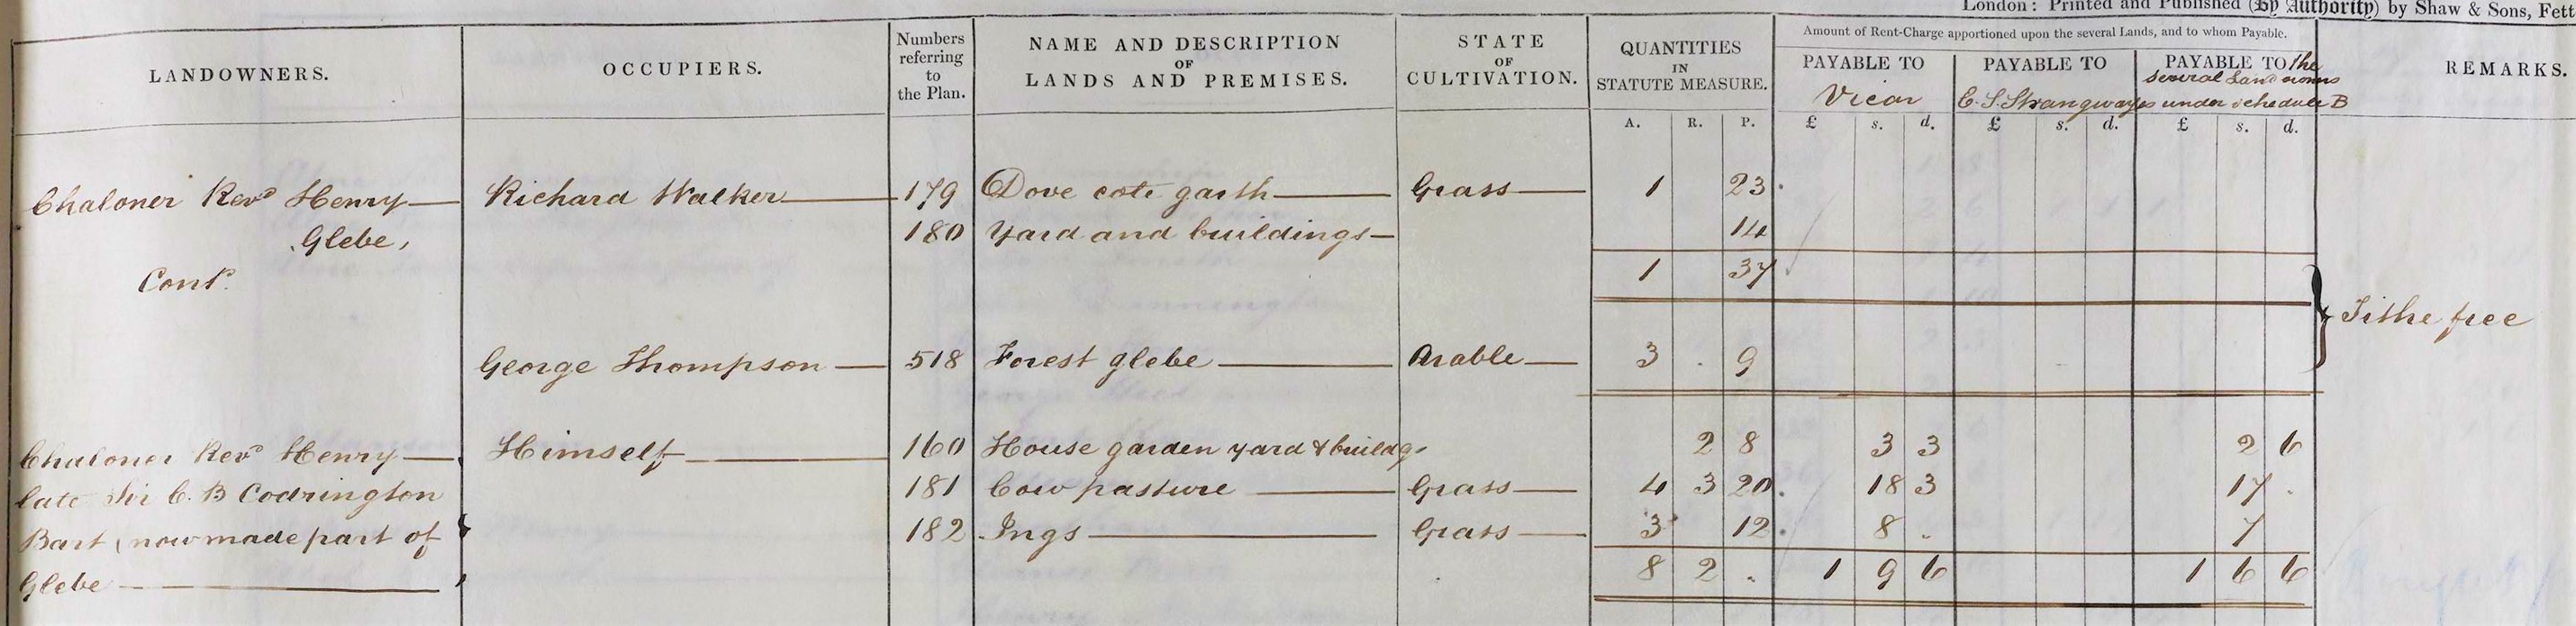 London: Printed and Published (By Authority) by Shaw & Sons, Fett
LANDOWNERS. OCCUPIERS. Numbers referring to the Plan. NAME AND DESCRIPTION OF LANDS AND PREMISES. STATE OF CULTIVATION. QUANTITIES IN STATUTE MEASURE. Amount of Rent-Charge apportioned upon the several Lands, and to whom Payable. REMARKS.
PAYABLE TO Vicar PAYABLE TO C. S. Strangwayes PAYABLE TO the several Landowners under schedule B
A. R. P. £ s. d. £ s. d. £ s. d.
Chaloner Revd Henry Richard Walker 179 Dove cote garth Grass 1 23
Glebe, 180 Yard and buildings 14
Cont. 1 37
Tithe free
George Thompson 518 Forest glebe Arable 3 . 9
Chaloner Revd Henry Himself 160 House garden yard & buildgs 2 8 3 3 2 6
late Sir C. B Codrington 181 Cow pasture Grass 4 3 20 18 3 17 .
Bart (now made part of 182 Ings Grass 3 12 8 . 7
Glebe 8 2 . 1 9 6 1 6 6